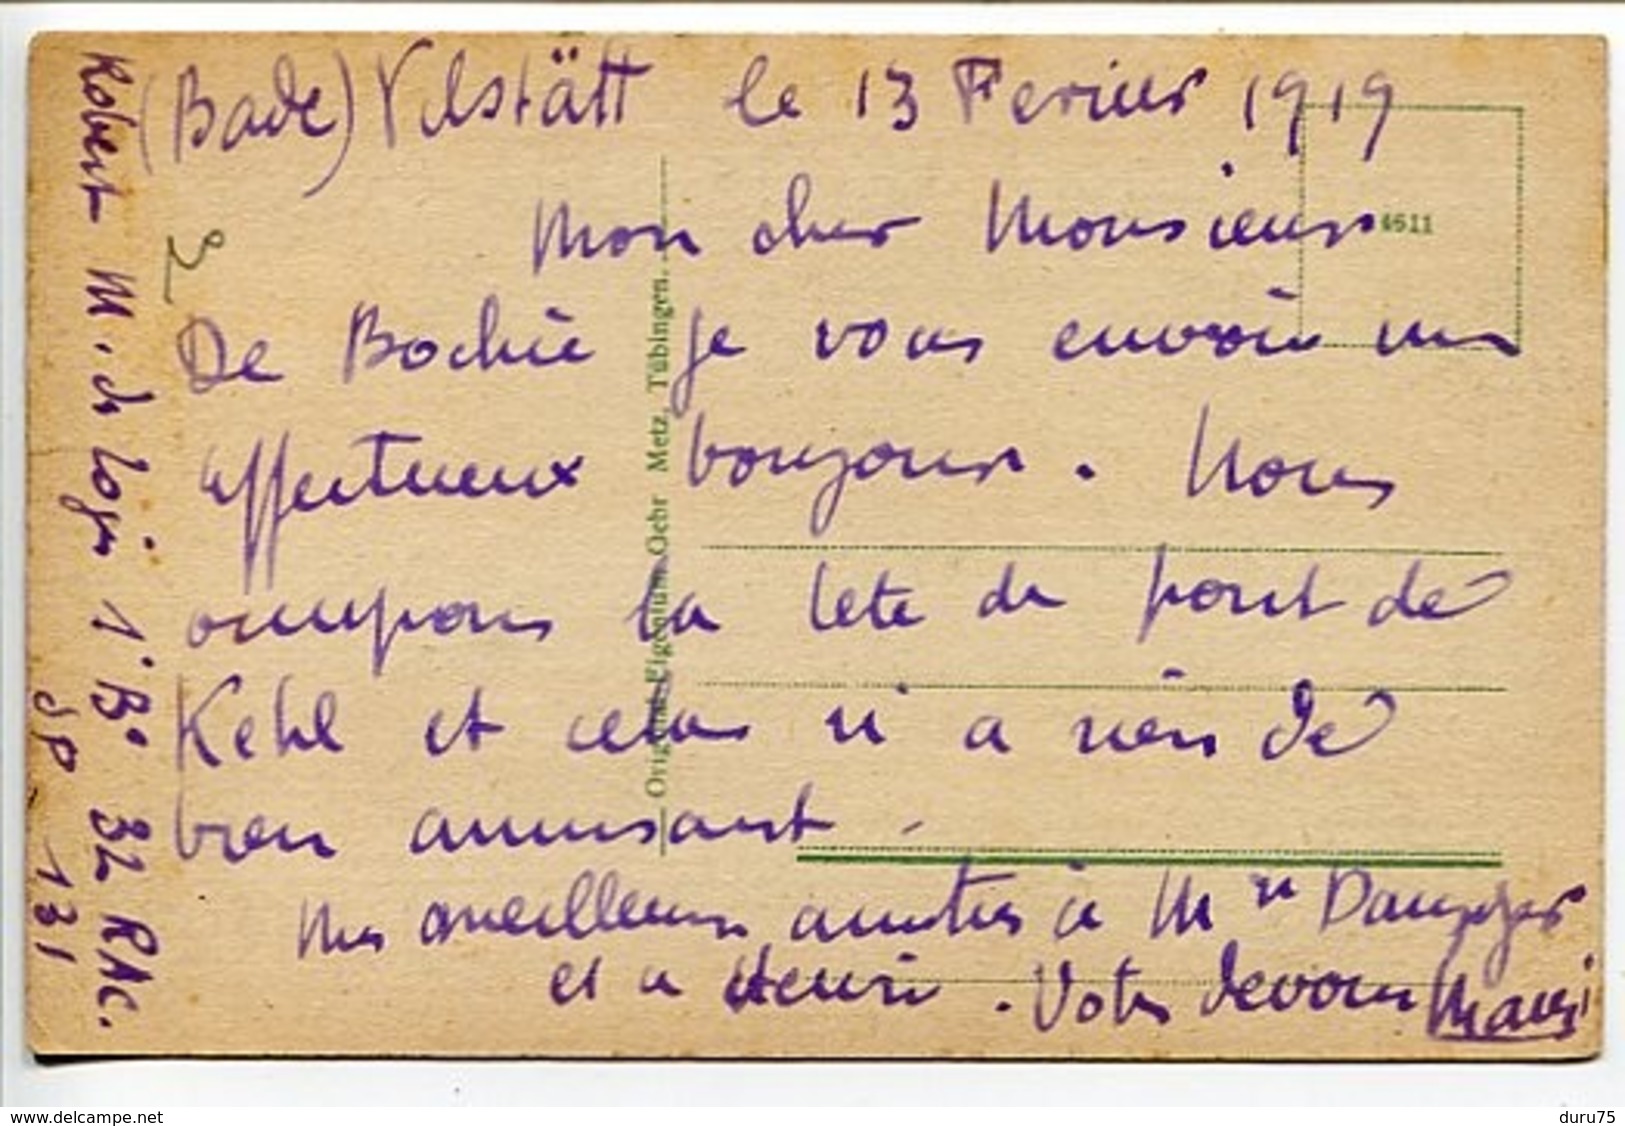 (Bade) Vilstätt le 13 Fevrier 1919
Mon cher Monsieur
4611
De Bochie je vous envoie un
affectueux bonjour. Nous
occupons la tete de pont de
Kehl et cela n'a rien de
bien amusant.
Mes meilleures amities à Mme
et a Henri. Votre devoué
Robert M. de Logis 1e Bie 32 RAC.
SP 131
Original-Eigentum Oehr Metz, Tübingen.
www.delcampe.net
duru75